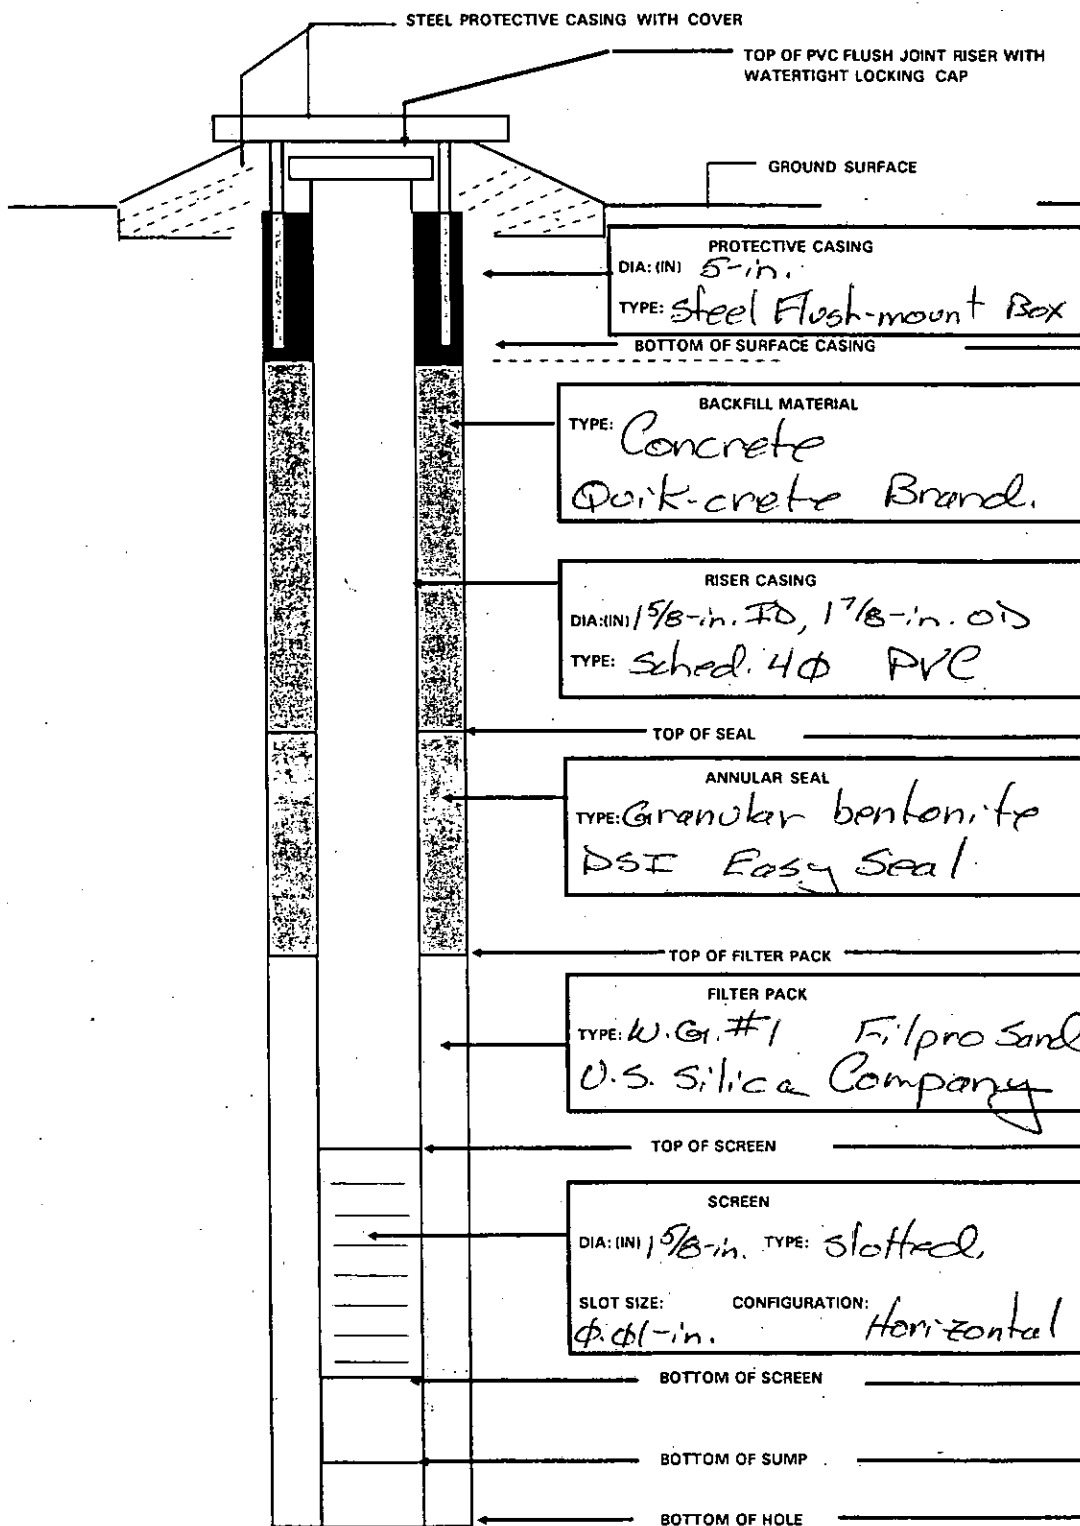 STEEL PROTECTIVE CASING WITH COVER
TOP OF PVC FLUSH JOINT RISER WITH
WATERTIGHT LOCKING CAP
GROUND SURFACE
PROTECTIVE CASING
DIA: (IN) 5-in.
TYPE: Steel Flush-mount Box
BOTTOM OF SURFACE CASING
BACKFILL MATERIAL
TYPE: Concrete
Quik-crete Brand.
RISER CASING
DIA:(IN) 1 5/8-in. ID, 1 7/8-in. OD
TYPE: Sched. 40 PVC
TOP OF SEAL
ANNULAR SEAL
TYPE: Granular bentonite
DSI Easy Seal
TOP OF FILTER PACK
FILTER PACK
TYPE: W.G. #1 Filpro Sand
U.S. Silica Company
TOP OF SCREEN
SCREEN
DIA: (IN) 1 5/8-in. TYPE: Slotted,
SLOT SIZE: CONFIGURATION:
0.01-in. Horizontal
BOTTOM OF SCREEN
BOTTOM OF SUMP
BOTTOM OF HOLE